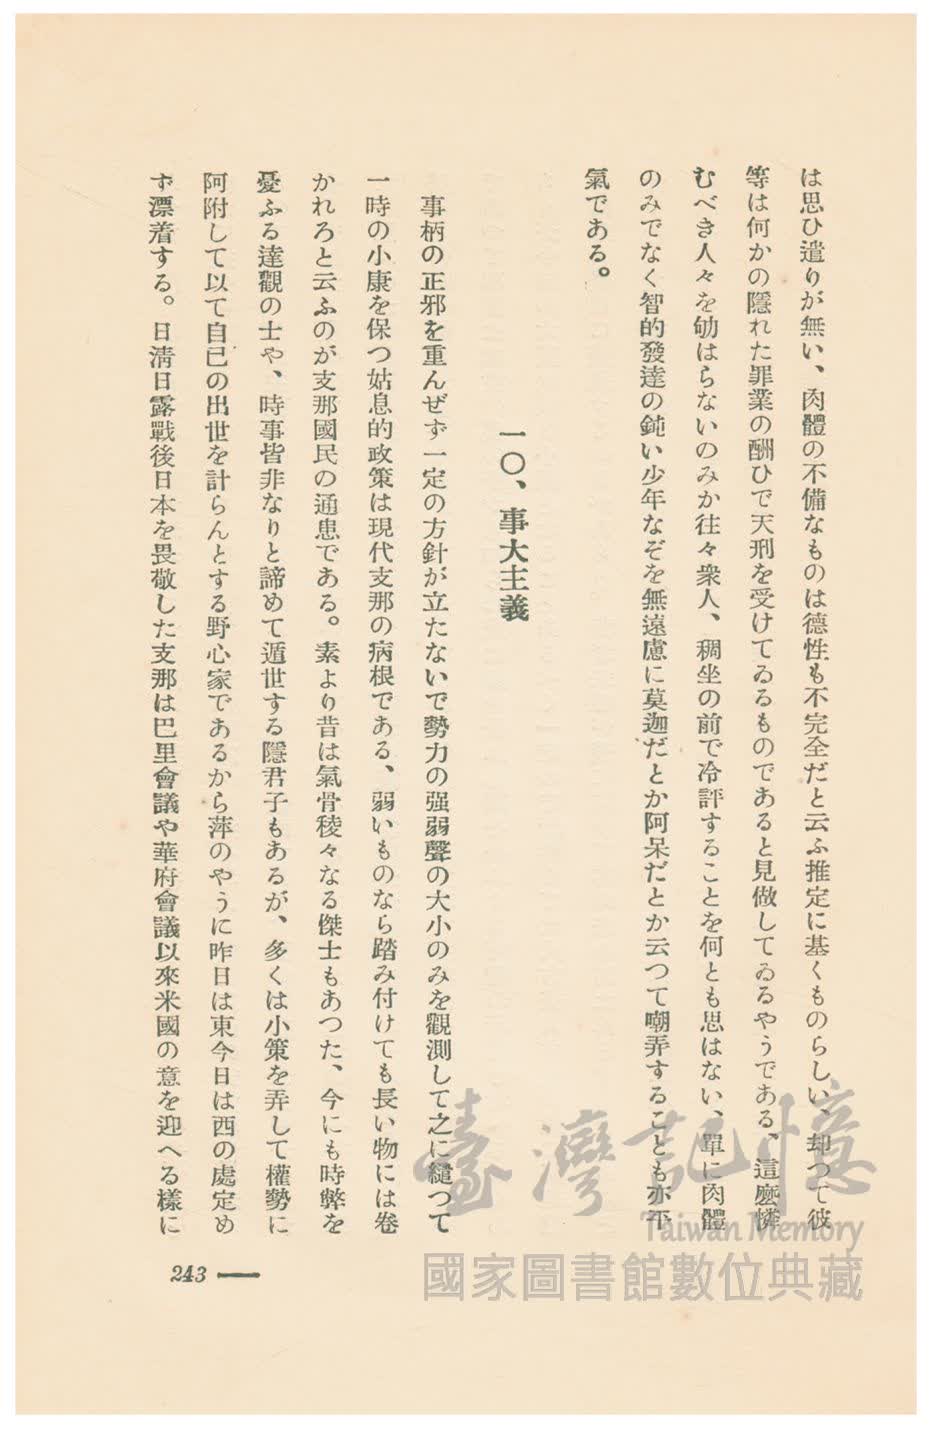 は思ひ遣りが無い、肉體の不備なものは德性も不完全だと云ふ推定に基くものらしい、却つて彼
等は何かの隱れた罪業の酬ひで天刑を受けてゐるものであると見做してゐるやうである、這麽憐
むべき人々を劬はらないのみか往々衆人、稠坐の前で冷評することを何とも思はない、單に肉體
のみでなく智的發達の鈍い少年なぞを無遠慮に莫迦だとか阿呆だとか云つて嘲弄することも亦平
氣である。
一〇、事大主義
事柄の正邪を重んぜず一定の方針が立たないで勢力の强弱聲の大小のみを觀測して之に縋つて
一時の小康を保つ姑息的政策は現代支那の病根である、弱いものなら踏み付けても長い物には卷
かれろと云ふのが支那國民の通患である。素より昔は氣骨稜々なる傑士もあつた、今にも時弊を
憂ふる達觀の士や、時事皆非なりと諦めて遁世する隱君子もあるが、多くは小策を弄して權勢に
阿附して以て自己の出世を計らんとする野心家であるから萍のやうに昨日は東今日は西の處定め
ず漂着する。日淸日露戰後日本を畏敬した支那は巴里會議や華府會議以來米國の意を迎へる樣に
243
臺灣記憶
Taiwan Memory
國家圖書館數位典藏